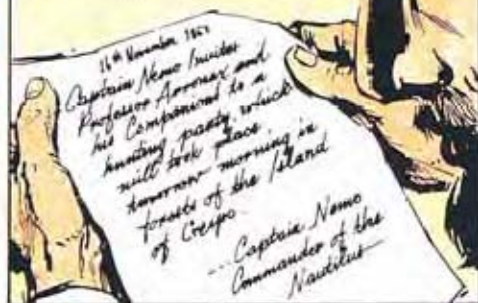 16th November 1867
Captain Nemo Invites
Professor Arronax and
his Companions to a
hunting party, which
will took place
tomorrow morning in
forests of the Island
of Crespo.
...Captain Nemo
Commander of the
Nautilus